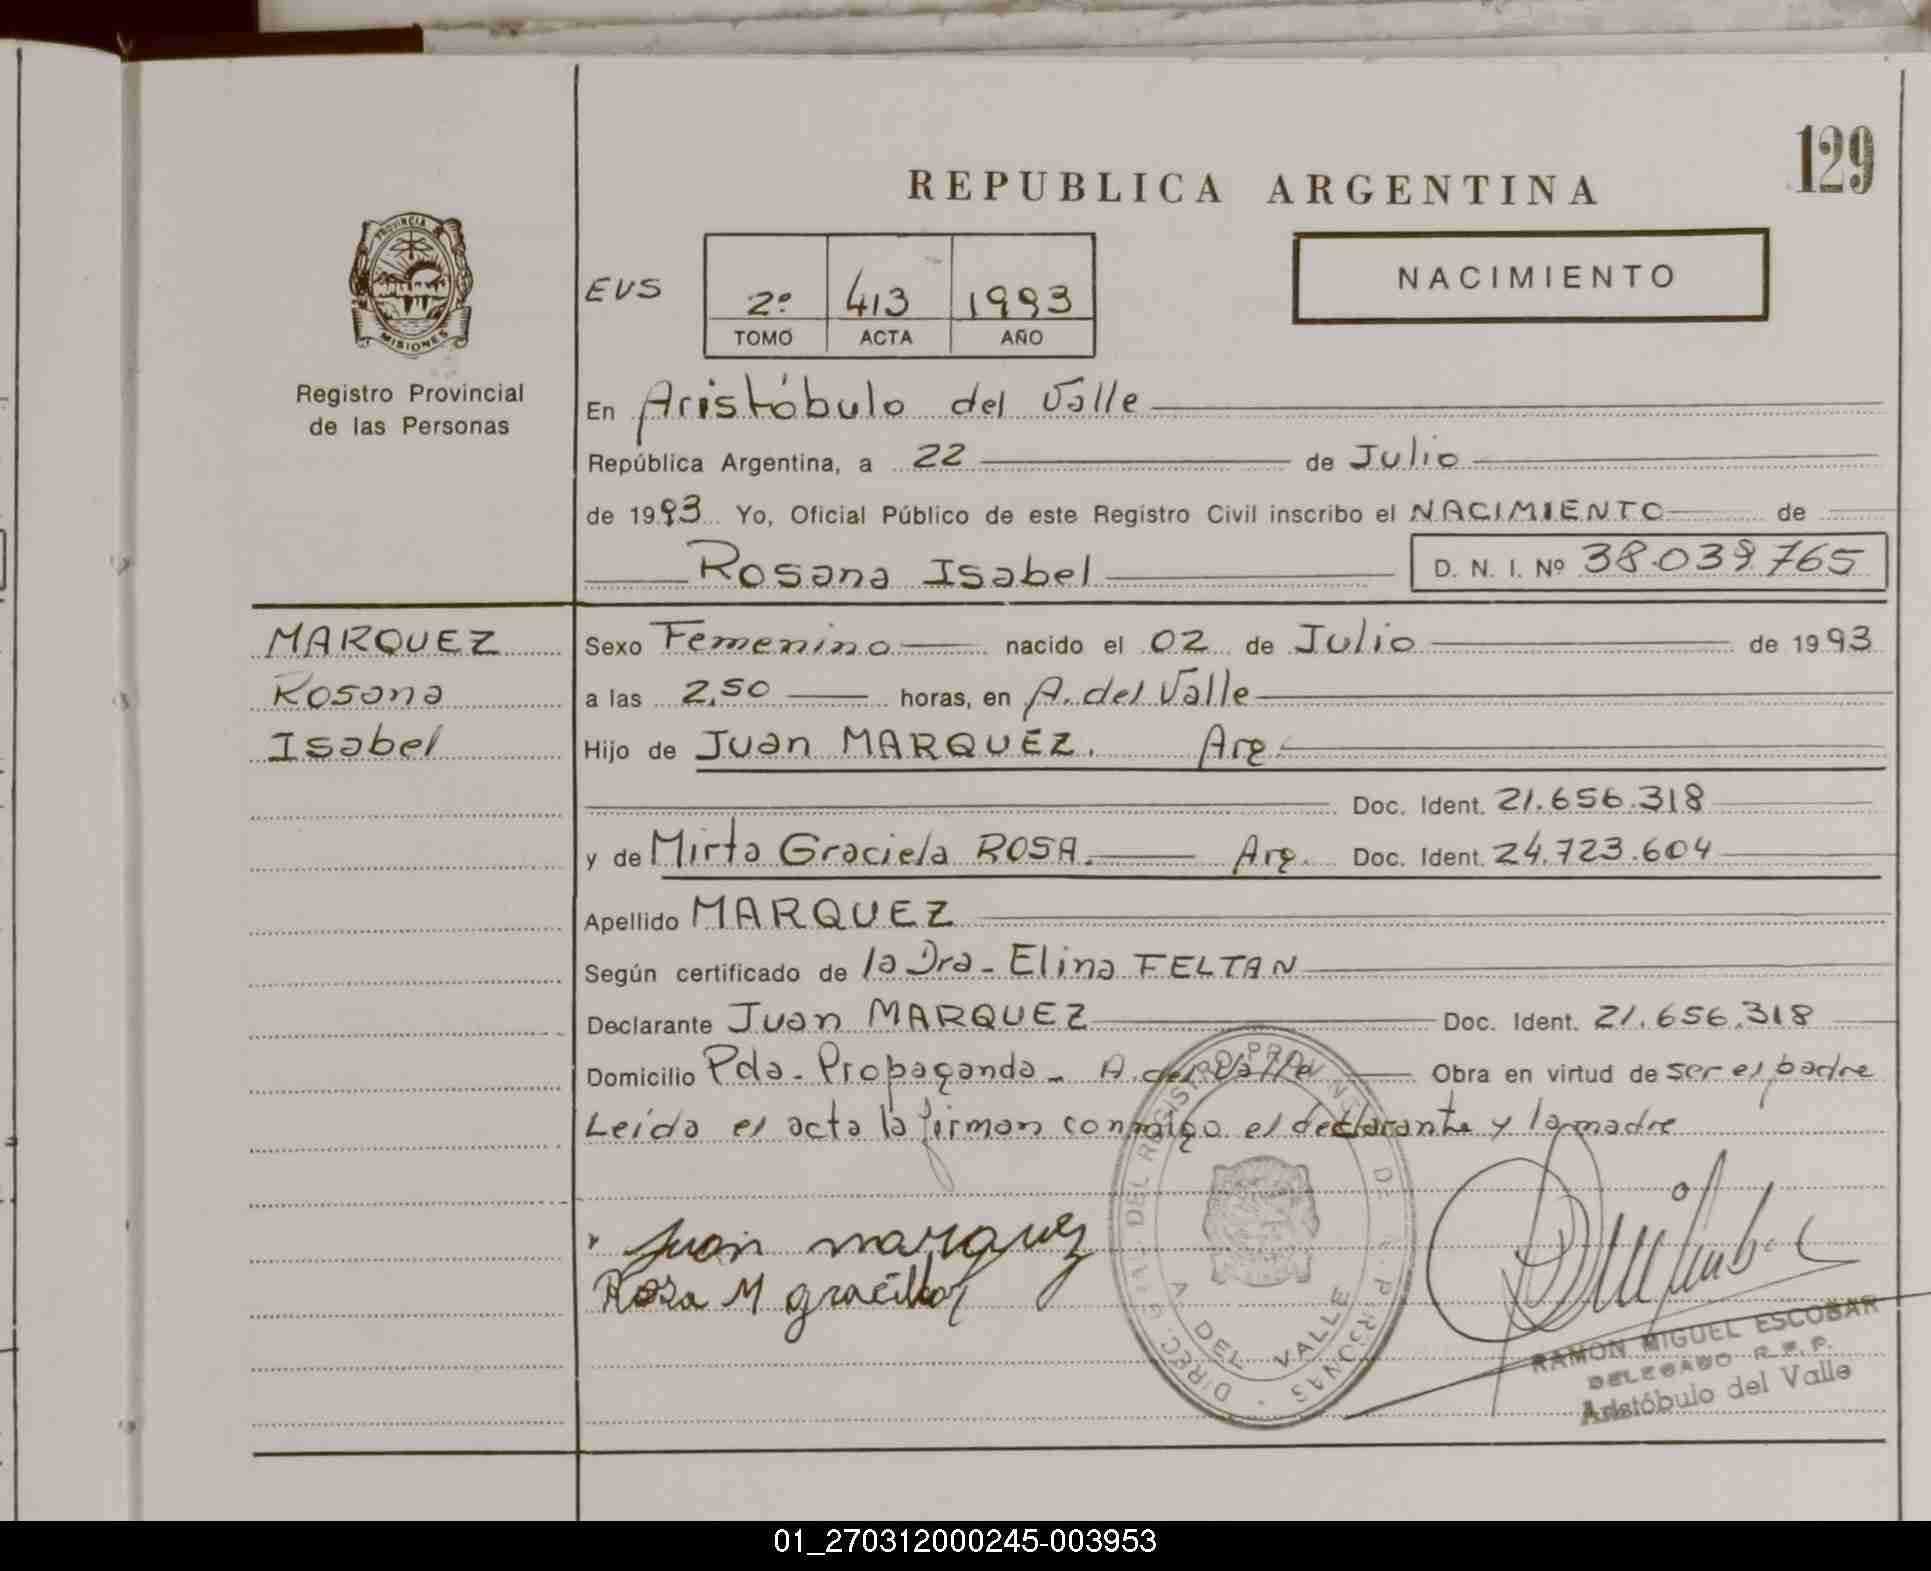 129
REPUBLICA ARGENTINA
PROVINCIA
MISIONES
Registro Provincial
de las Personas
EVS
2º 413 1993
TOMO ACTA AÑO
NACIMIENTO
En Aristóbulo del Valle
República Argentina, a 22 de Julio
de 1993 Yo, Oficial Público de este Registro Civil inscribo el NACIMIENTO de
Rosana Isabel D. N. I. Nº 38.039.765
MARQUEZ
Rosana
Isabel
Sexo Femenino nacido el 02 de Julio de 1993
a las 2,50 horas, en A. del Valle
Hijo de Juan MARQUEZ. Arg.
Doc. Ident. 21.656.318
y de Mirta Graciela ROSA. Arg. Doc. Ident. 24.723.604
Apellido MARQUEZ
Según certificado de la Dra- Elina FELTAN
Declarante Juan MARQUEZ Doc. Ident. 21.656.318
Domicilio Pda- Propaganda- A. del Valle Obra en virtud de ser el padre
Leída el acta la firman conmigo el declarante y la madre
Juan marquez
Rosa M
A. DEL VALLE
RAMON MIGUEL ESCOBAR
DELEGADO R. P. P.
Aristóbulo del Valle
01_270312000245-003953